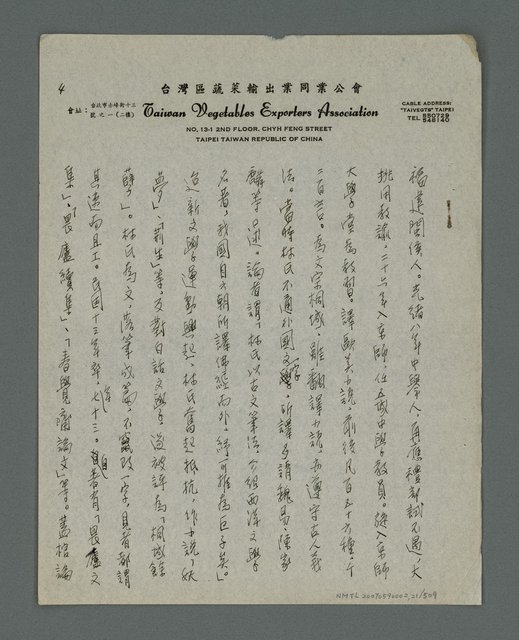 4
台灣區蔬菜輸出業同業公會
會址：台北市赤峰街十三號之一（二樓）
Taiwan Vegetables Exporters Association
CABLE ADDRESS:
"TAIVEGTS" TAIPEI
TEL 550729
546140
NO. 13-1 2ND FLOOR. CHYH FENG STREET
TAIPEI TAIWAN REPUBLIC OF CHINA
福建閩侯人。光緒八年中舉人，再應禮部試不遇，大
挑用教諭，二十六年入京師，任五城中學教員。繼入京師
大學堂為教習。譯歐美小說，前後凡百五十六種，千
二百萬言。為文宗桐城，雖翻譯小說，亦遵守古人義
法。當時林氏不通外國文字，所譯多請魏易、陳家
麟等口述。論者謂「林氏以古文筆法，介紹西洋文學
名著，我國自六朝所譯佛經而外，綺可推為巨子矣。」
迨新文學運動興起，林氏奮起抵抗，作小說「妖
夢」、「荊生」等，反對白話文學，遂被評為「桐城餘
孽」。林氏為文，落筆成篇，不竄改一字，見者都謂
其速而且工。民國十三年卒，年七十三。自著有「畏廬文
集」、「畏廬續集」、「春覺齋論文」等。蓋棺論
NMTL 20070590002, 21/509